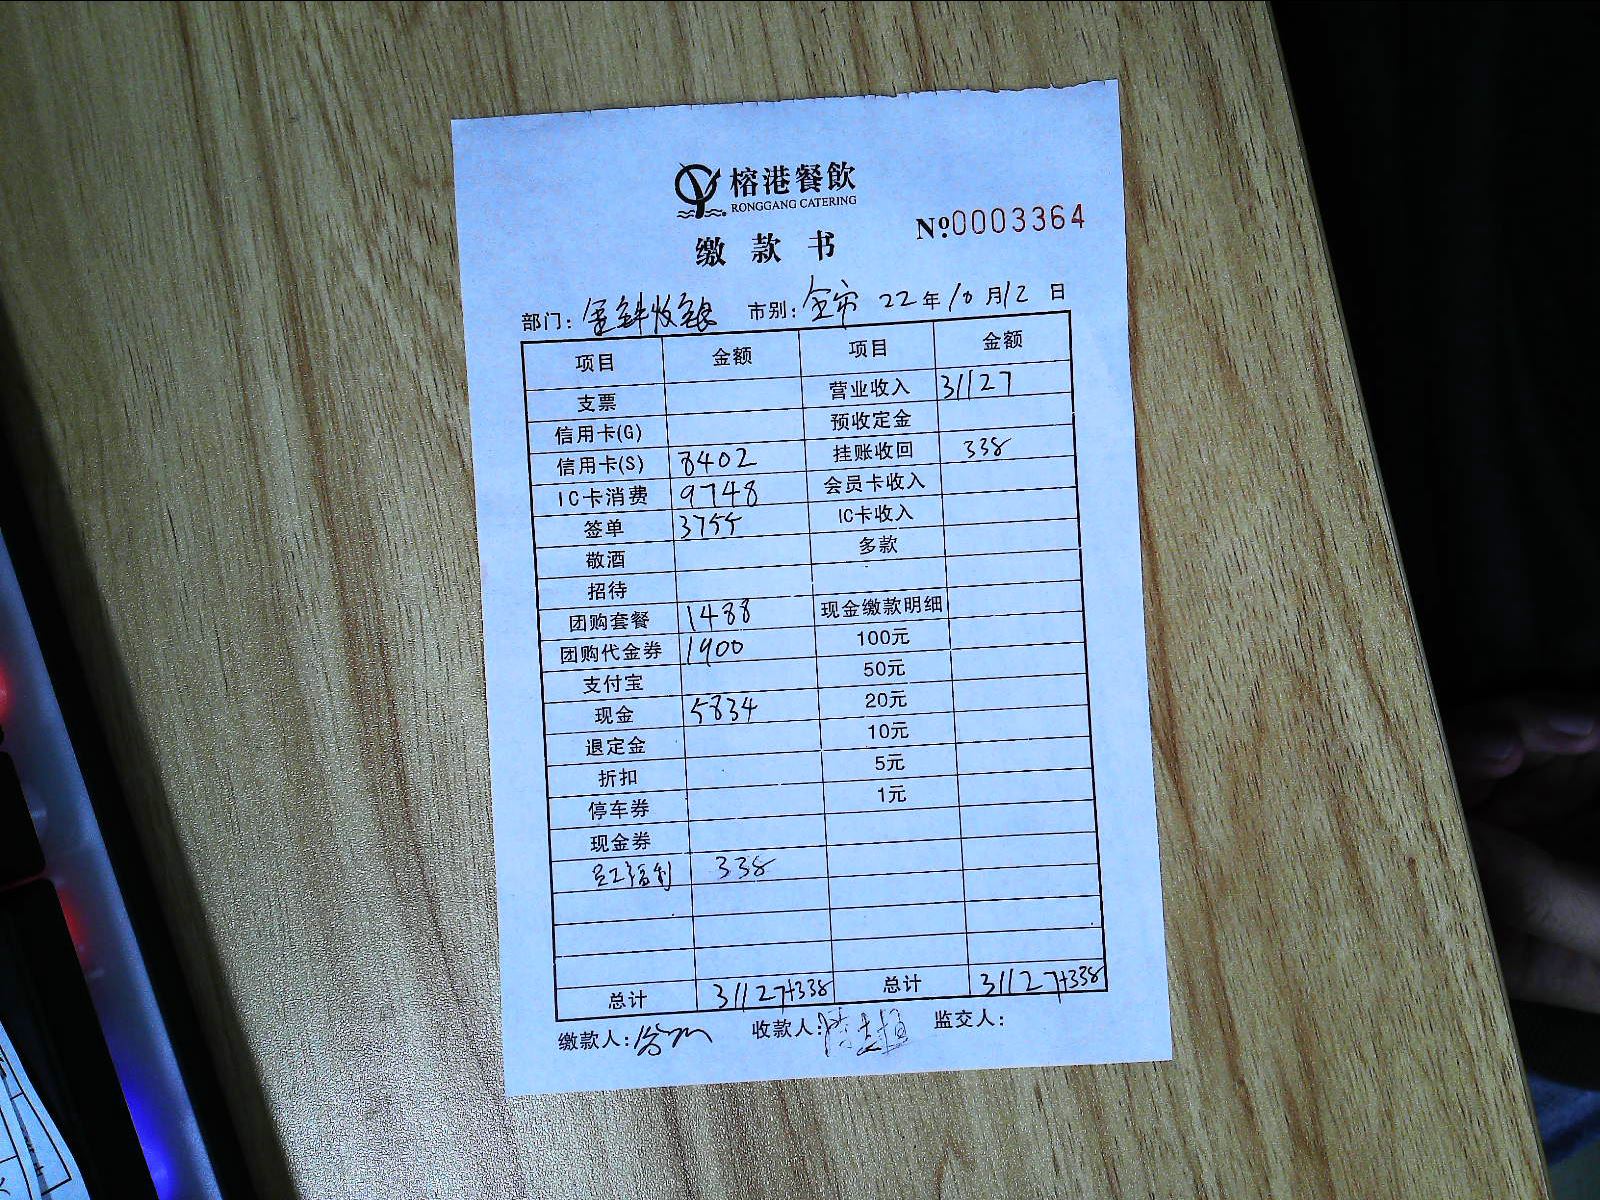 榕港餐飲
RONGGANG CATERING
缴款书 №0003364
部门: 市别: 全市 22年10月12日
项目 金额 项目 金额
支票 营业收入 31127
信用卡(G) 预收定金
信用卡(S) 8402 挂账收回 338
IC卡消费 9748 会员卡收入
签单 3755 IC卡收入
敬酒 多款
招待
团购套餐 1488 现金缴款明细
团购代金券 1900 100元
支付宝 50元
现金 5834 20元
退定金 10元
折扣 5元
停车券 1元
现金券
员工福利 338
总计 31127+338 总计 31127+338
缴款人: 收款人: 监交人: